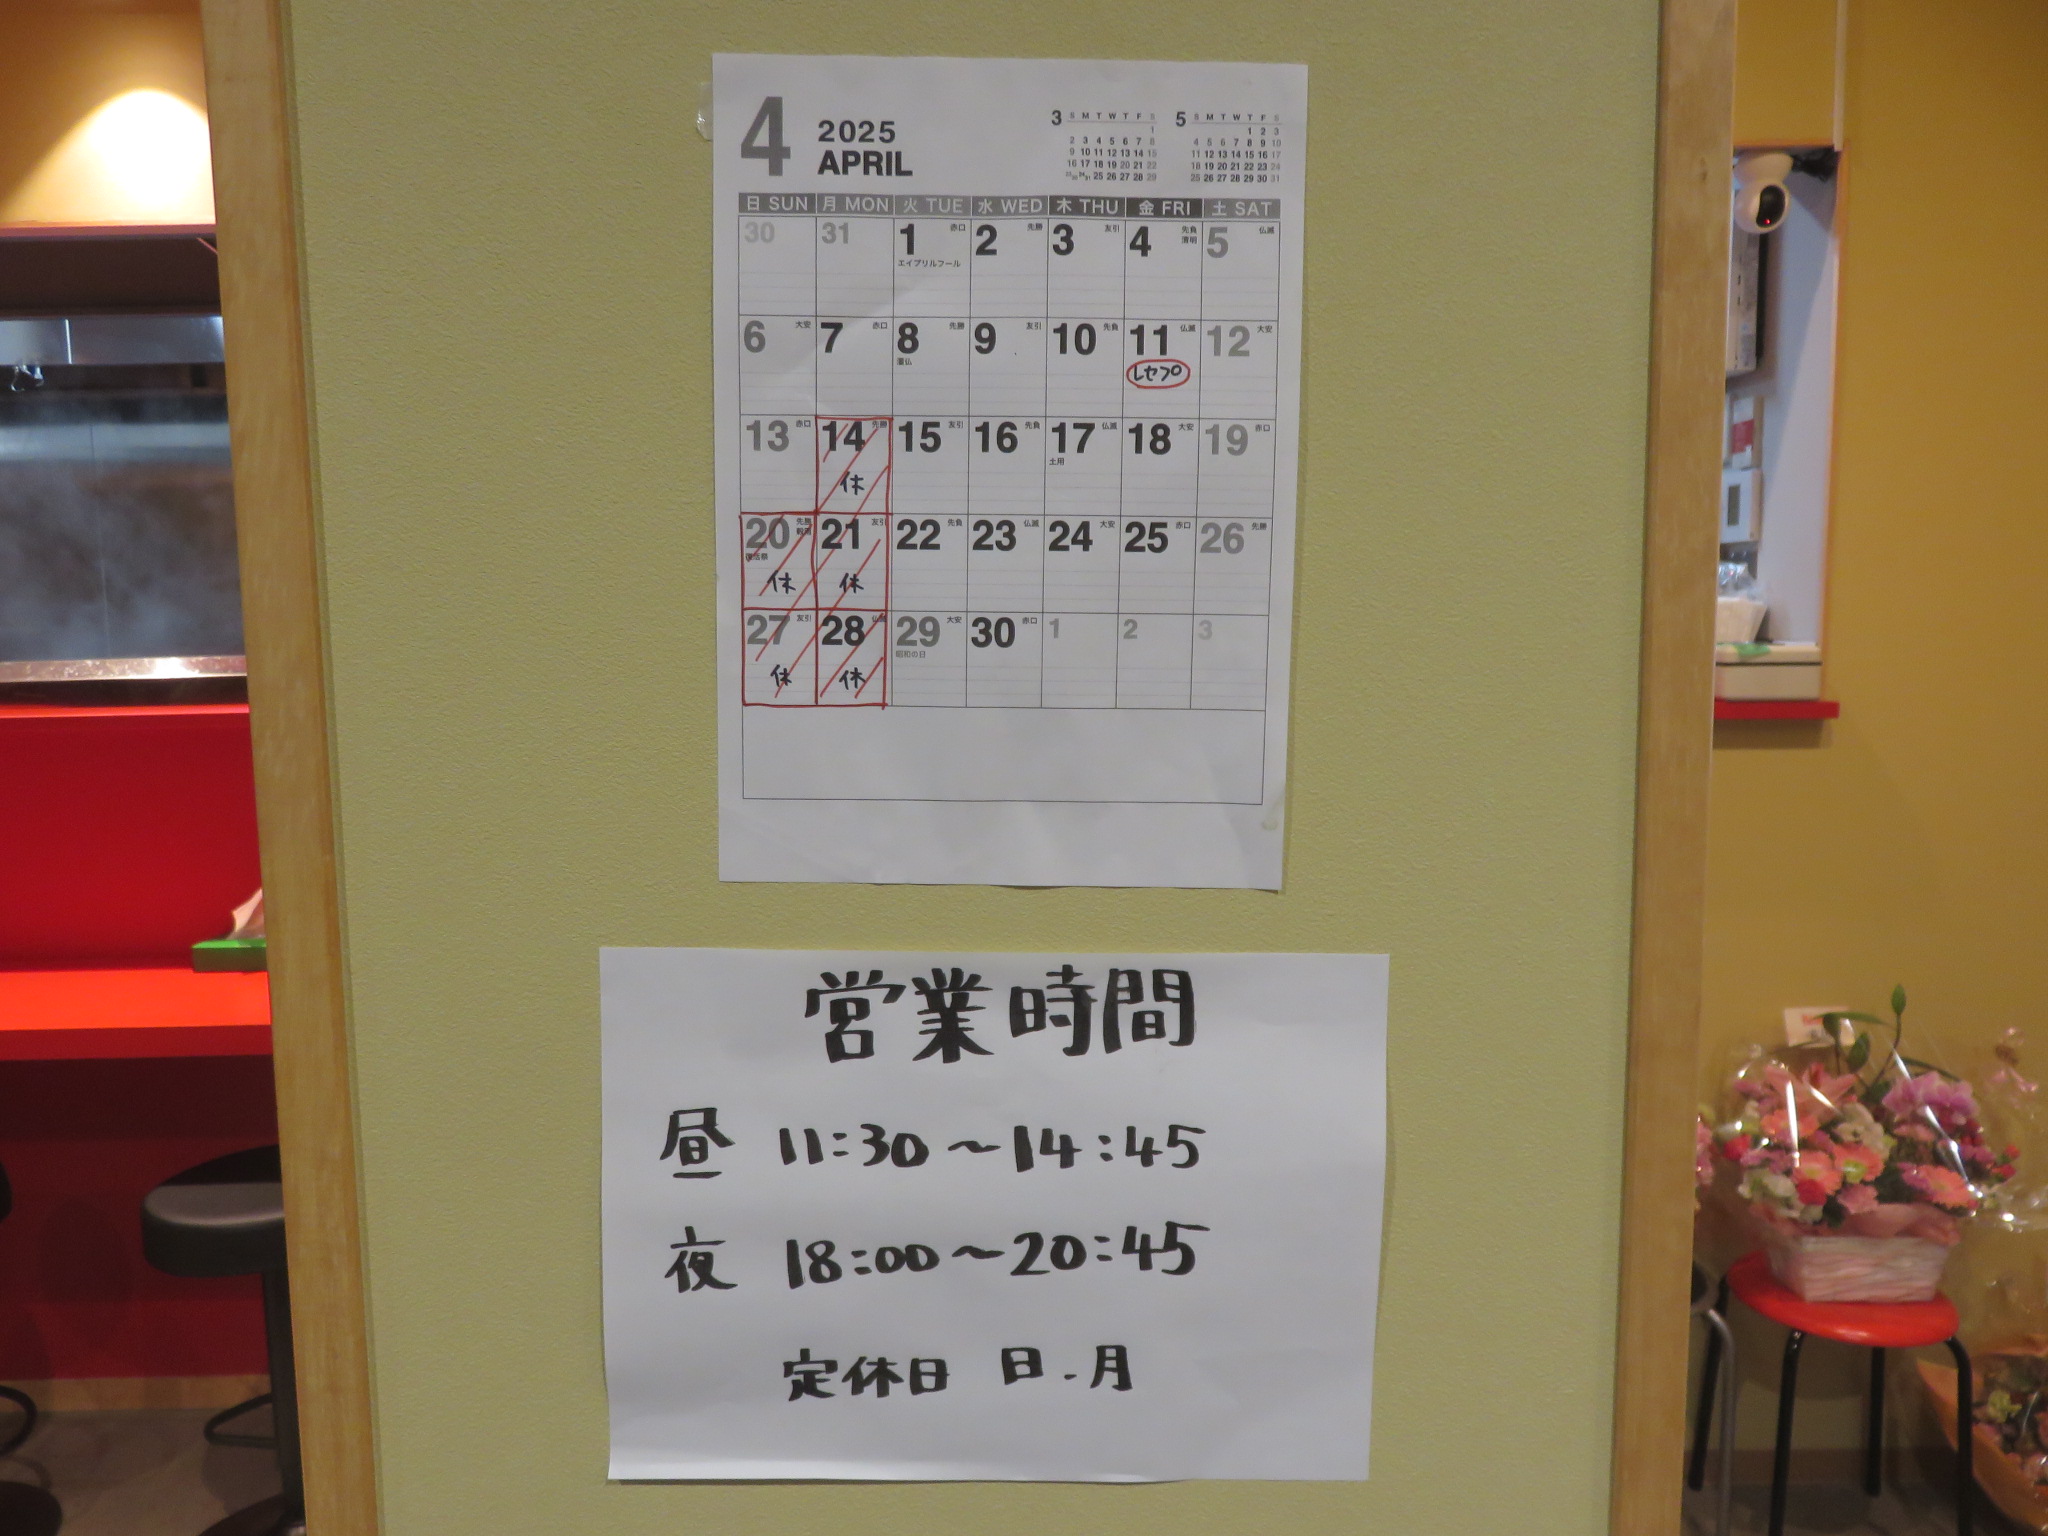 4
2025
APRIL
3 S M T W T F S
1
2 3 4 5 6 7 8
9 10 11 12 13 14 15
16 17 18 19 20 21 22
25 26 27 28 29
5 S M T W T F S
1 2 3
4 5 6 7 8 9 10
11 12 13 14 15 16 17
18 19 20 21 22 23 24
25 26 27 28 29 30 31
日 SUN 月 MON 火 TUE 水 WED 木 THU 金 FRI 土 SAT
30 31 1 赤口 2 先勝 3 友引 4 先負 5 仏滅
清明
エイプリルフール
6 大安 7 赤口 8 先勝 9 友引 10 先負 11 仏滅 12 大安
レセプ
13 赤口 14 先勝 15 友引 16 先負 17 仏滅 18 大安 19 赤口
土用
休
20 先勝 21 友引 22 先負 23 仏滅 24 大安 25 赤口 26 先勝
復活祭
休 休
27 友引 28 仏滅 29 大安 30 赤口 1 2 3
昭和の日
休 休
営業時間
昼 11:30~14:45
夜 18:00~20:45
定休日 日.月